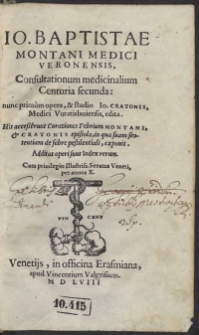 IO. BAPTISTAE
MONTANI MEDICI
VERONENSIS,
Consultationum medicinalium
Centuria secunda:
nunc primùm opera, & studio Io. CRATONIS,
Medici Vuratislauiensis, edita.
His accesserunt Curationes Febrium MONTANI,
& CRATONIS epistola, in qua suam sen-
tentiam de febre pestilentiali, exponit.
Additus operi suus Index rerum.
Cum priuilegio Illustriss. Senatus Veneti,
per annos X.
VIN CENT
Venetijs, in officina Erasmiana,
apud Vincentium Valgrisium.
M D LVIII
10.415